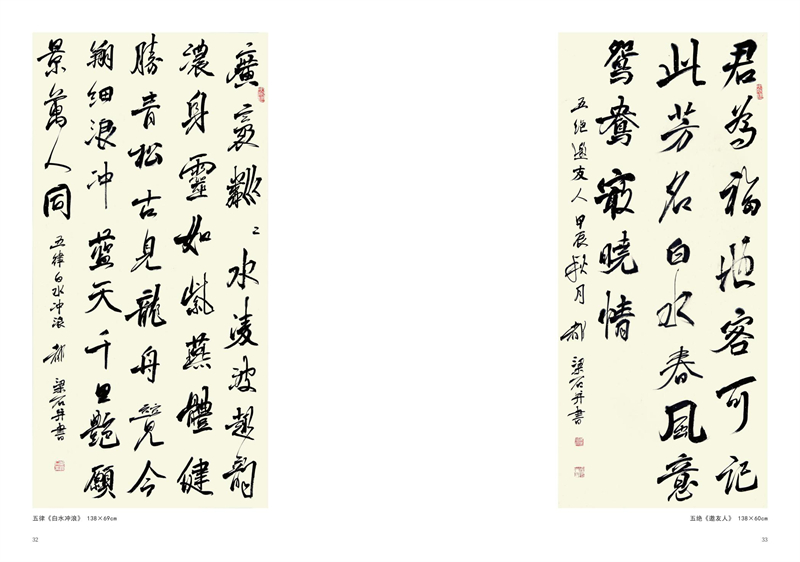 廣袤粼〻水凌波韻
濃身靈如紫燕體健
勝青松古見龍舟今
翔細浪冲藍天千里艷願
景萬人同
五律白水冲浪 都梁石井書
五律《白水冲浪》 138×69cm
32
君為福地客可記
此芳名白水春風意
鴛鴦最曉情
五绝邀友人 甲辰秋月 都梁石井書
五绝《邀友人》 138×60cm
33